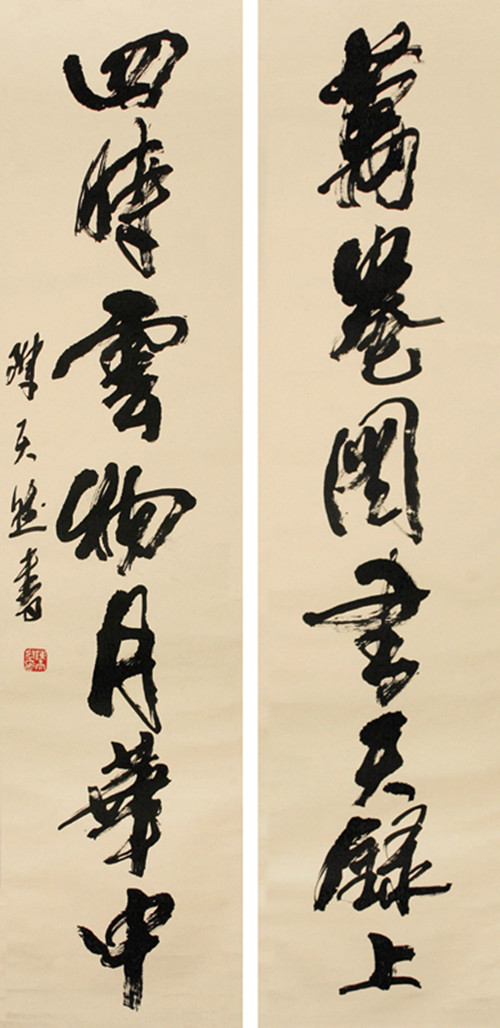 萬卷圖書天錄上
四時雲物月華中
陳天然書